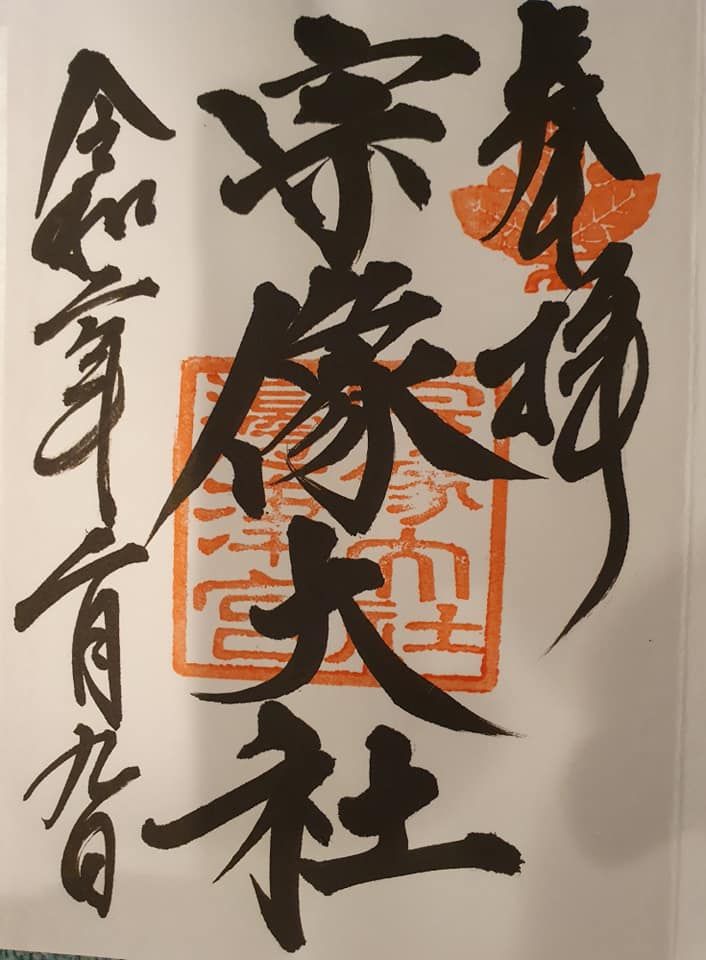 奉拝
宗像大社
宗像大社
邊津宮
令和二年二月九日